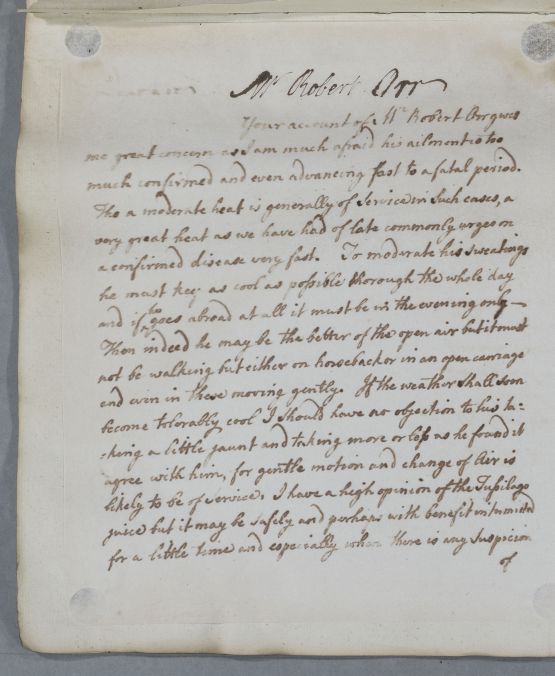 Mr Robert Orr
Your account of Mr Robert Orr gives
me great concern as I am much afraid his ailment is too
much confirmed and even advancing fast to a fatal period.
Tho a moderate heat is generally of Service in such cases, a
very great heat as we have had of late commonly urges on
a confirmed disease very fast. To moderate his sweatings
he must keep as cool as possible thorough the whole day
and if he goes abroad at all it must be in the evening only —
Then indeed he may be the better of the open air but it must
not be walking but either on horseback or in an open carriage
and even in these moving gently. If the weather shall soon
become tolorably cool I should have no objection to his ta=
=king a little jaunt and taking more or less as he found it
agree with him, for gentle motion and change of Air is
likely to be of service. I have a high opinion of the Tussilago
juice but it may be safely and perhaps with benefit intermitted
for a little time and especially when there is any Suspicion
of